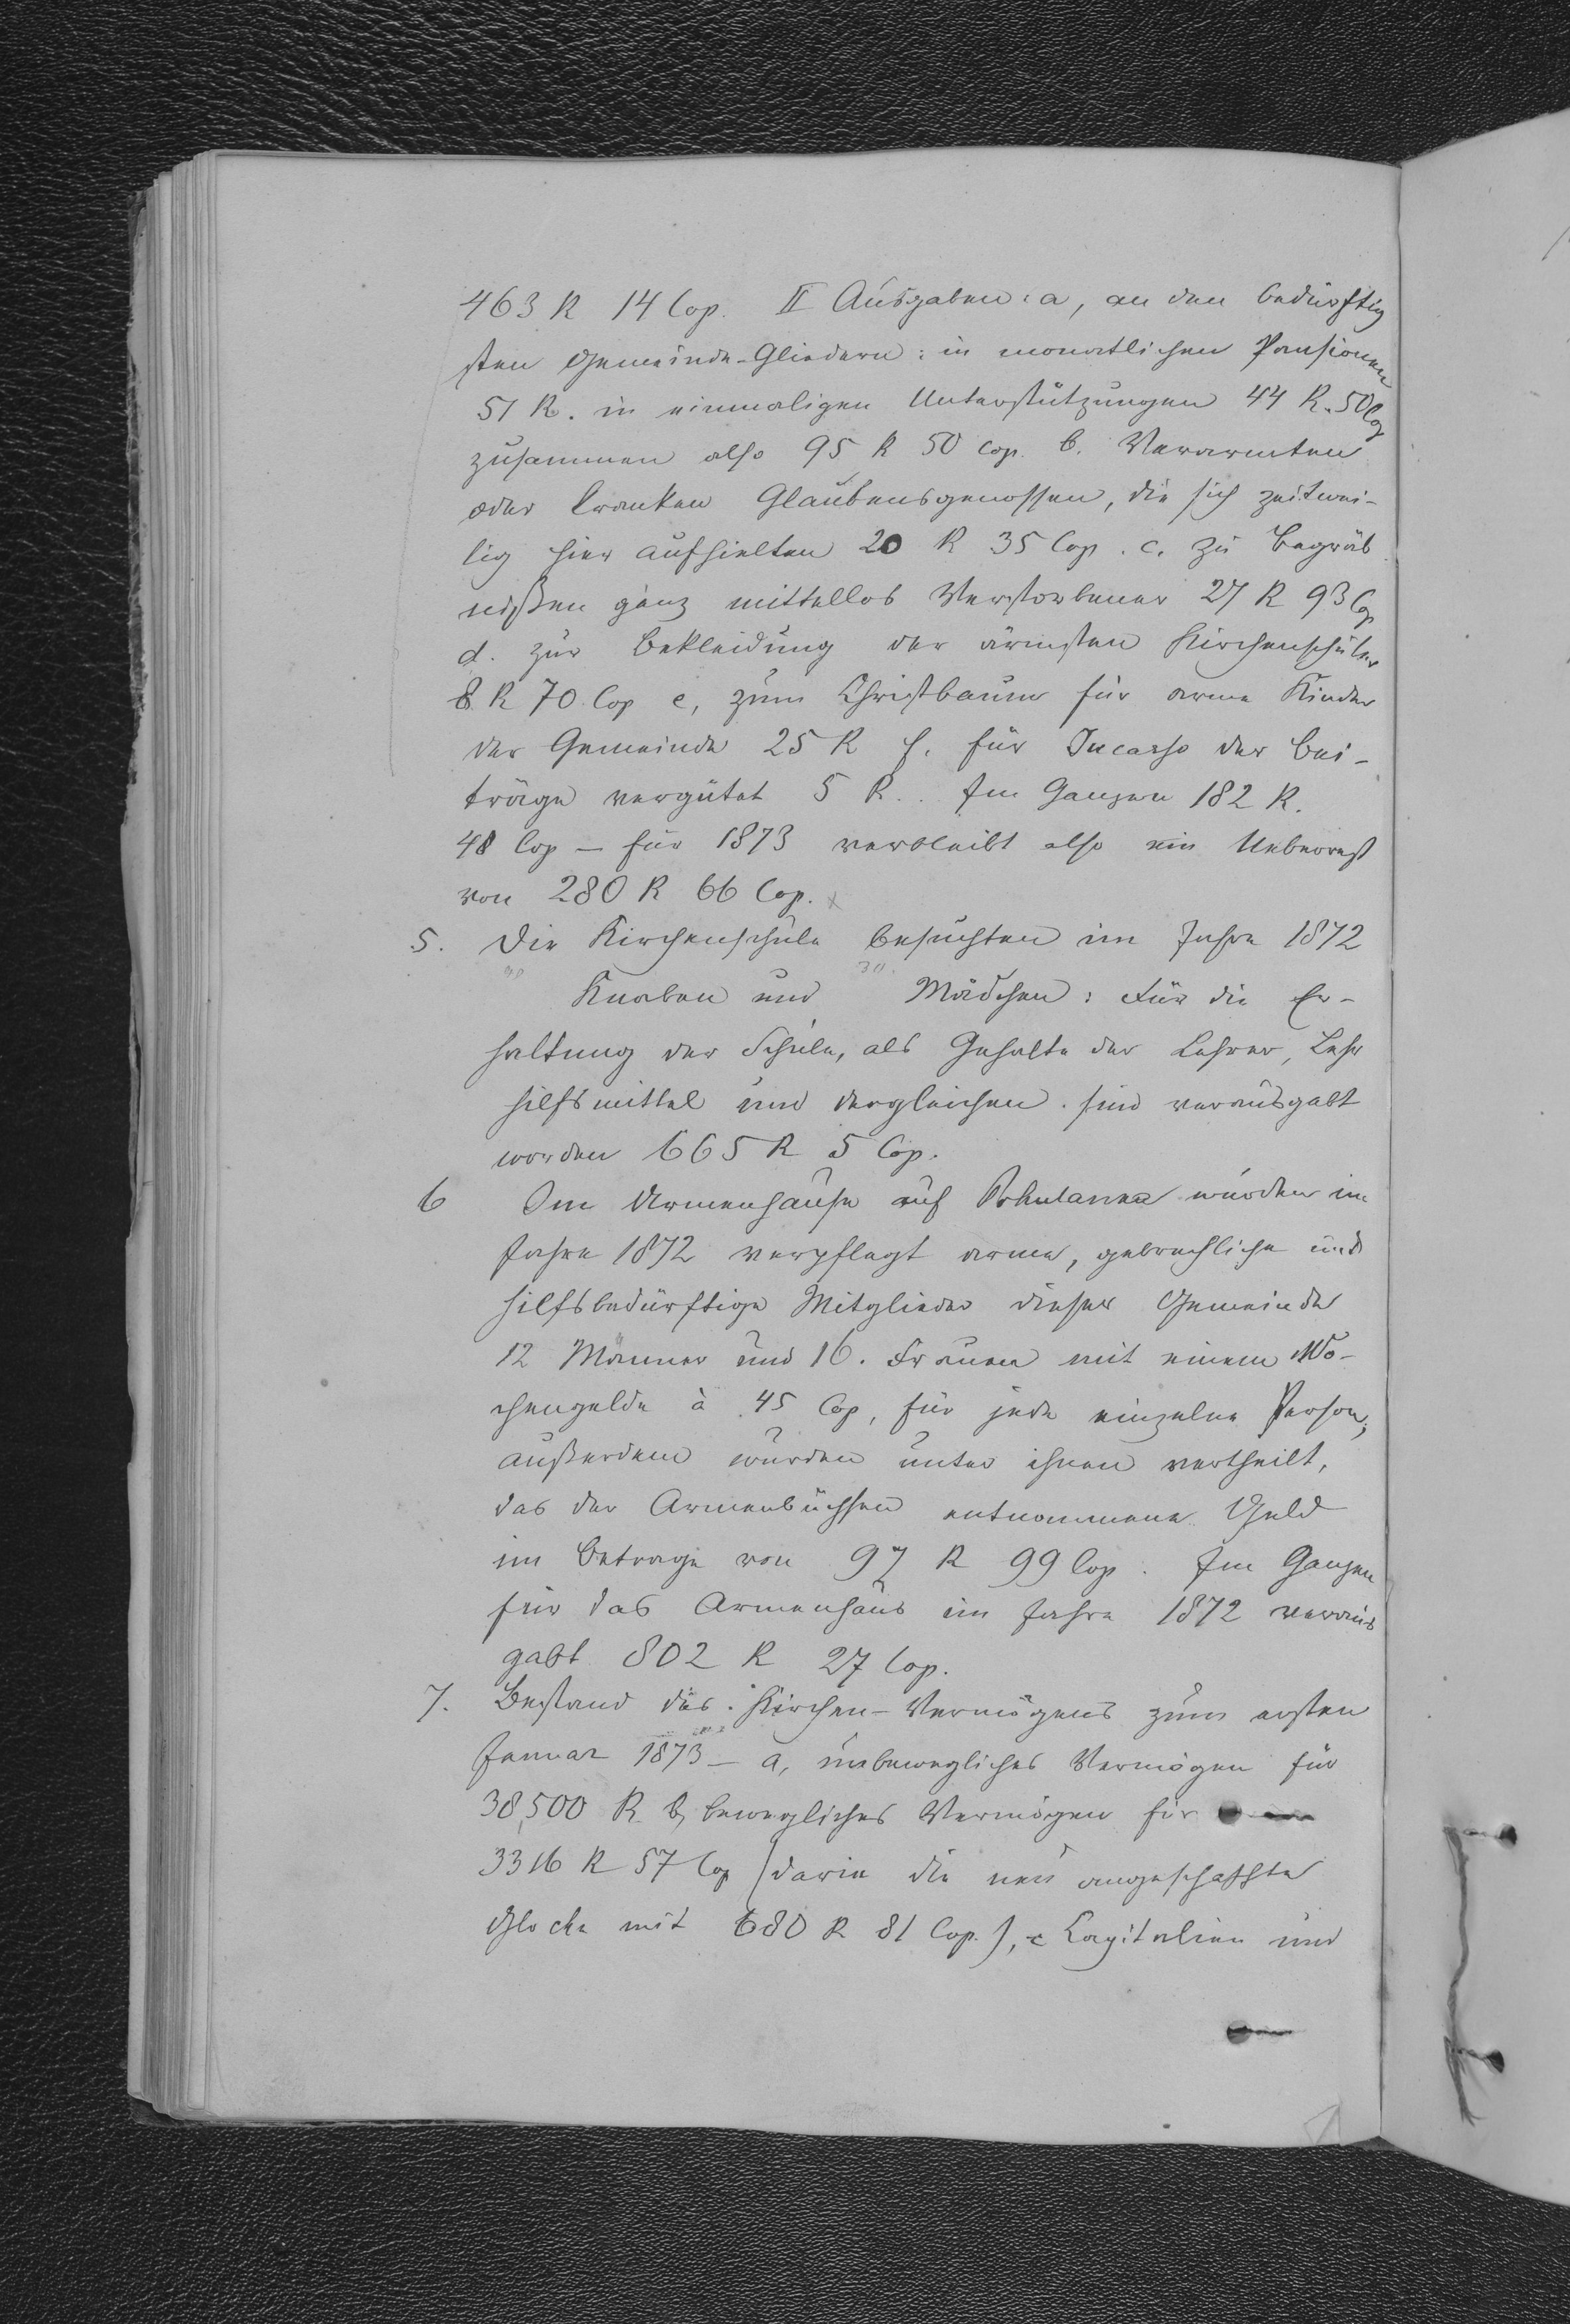 463 R 14 Cop. II Ausgaben: a, an den bedürftig
sten Gemeinde-Gliedern: in monatlichen Pensionen
51 R. in einmaligen Unterstützungen 44 R. 50 Cop
zusammen also 95 R 50 Cop. b. Verarmten
oder kranken Glaubensgenossen, die sich zeitwei-
lig hier aufhielten 20 R 35 Cop. c. zu Begräb
nißen ganz mittellos Verstorbener 27 R 93 Cop
d. zur Bekleidung der ärmsten Kirchenschüler
8 R 70 Cop e, zum Christbaum für arme Kinder
der Gemeinde 25 R f. für Incasso der Bei-
träge vergütet 5 R.. Im Ganzen 182 R.
48 Cop – für 1873 verbleibt also ein Ueberrest
von 280 R 66 Cop.
5. Die Kirchenschule besuchten im Jahre 1872
30.
Knaben und Mädchen: Für die Er-
haltung der Schule, als Gehalte der Lehrer, Lehr
hilfsmittel und dergleichen. sind verausgabt
worden 665 R 5 Cop.
6 Im Armenhause auf Pohulanka wurden im
Jahre 1872 verpflegt arme, gebrechliche und
hilfsbedürftige Mitglieder dieser Gemeinde
12 Männer und 16. Frauen mit einem Wo-
chengelde à 45 Cop, für jede einzelne Person;
außerdem wurden unter ihnen vertheilt,
das der Armenbüchsen entnommene Geld
im Betrage von 97 R 99 Cop. Im Ganzen
für das Armenhaus im Jahre 1872 veraus
gabt 802 R 27 Cop.
7. Bestand des Kirchen-Vermögens zum ersten
Januar 1873 – a, unbewegliches Vermögen für
38,500 R b, bewegliches Vermögen für
3316 R 57 Cop (darin die neu angeschaffte
Glocke mit 680 R 81 Cop.), c Capitalien und